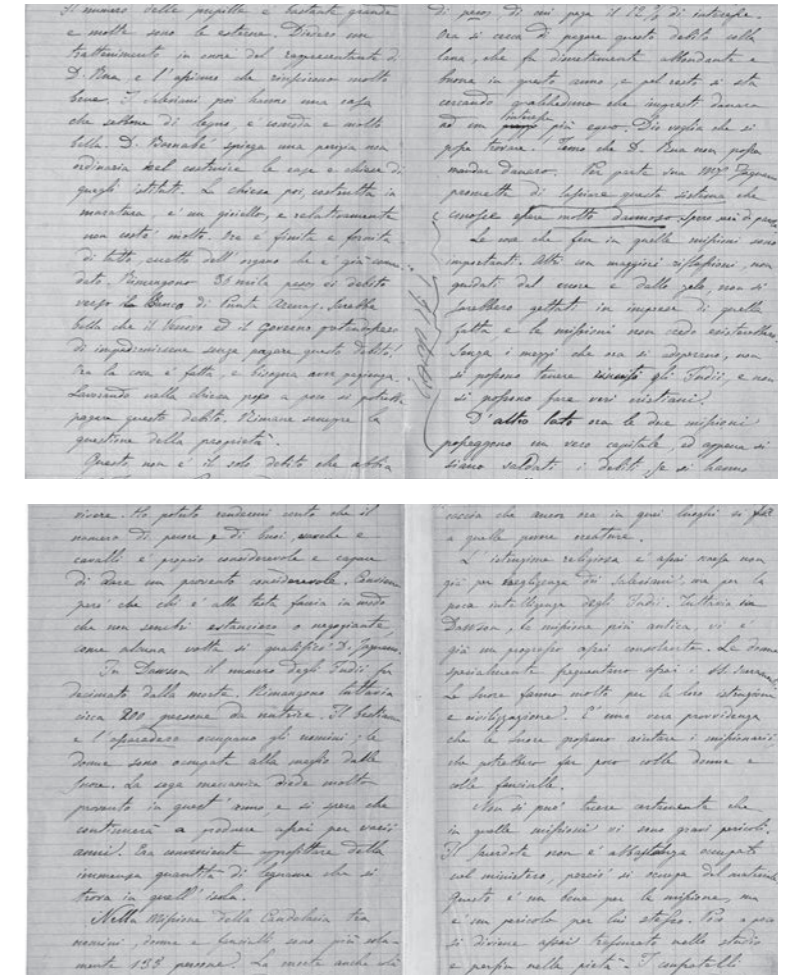 Il numero delle pupille è bastante grande
e molte sono le esterne. Diedero un
trattenimento in onore del rappresentante di
D. Rua, e l'opinio che riuscirono molto
bene. I Salesiani poi hanno una casa
che sebbene di legno, è comoda e molto
bella. D. Bernabé spiega una perizia non
ordinaria nel costruire le case e chiese di
quegli istituti. La chiesa poi, costrutta in
muratura, è un gioiello, e relativamente
non costò molto. Ora è finita e fornita
di tutto, eccetto dell'organo che è già
dato. Rimangono 36 mila pesos di debito
verso il Banco di Punta Arenas. Sarebbe
bella che il Vescovo ed il Governo pretendessero
di impadronirsene senza pagare questo debito!
Ora la cosa è fatta, e bisogna aver pazienza.
Lavorando nella chiesa poco a poco si potrebbe
pagare questo debito. Rimane sempre la
questione della proprietà.
Questo non è il solo debito che abbia
di pesos, di cui paga il 12% di interesse.
Ora si cerca di pagare questo debito colla
lana, che fu discretamente abbondante e
buona in questo anno, e pel resto si sta
cercando qualcheduno che impresti danaro
ad un interesse più equo. Dio voglia che si
possa trovare! Temo che D. Rua non possa
mandar danaro. Per parte sua Mgr Fagnano
promette di lasciare questo sistema che
conosce essere molto dannoso. Spero
Le cose che feci in quelle missioni sono
importanti. Altri con maggiori riflessioni, non
guidati dal cuore e dallo zelo, non si
sarebbero gettati in imprese di quella
fatta e le missioni non credo esisterebbero.
Senza i mezzi che ora si adoperano, non
si possono tenere riuniti gli Indii, e non
si possono fare veri cristiani.
D'altro lato ora le due missioni
posseggono un vero capitale, ed appena si
siano saldati i debiti, se si hanno
vivere. Ho potuto rendermi conto che il
numero di pecore e di buoi, vacche e
cavalli è proprio considerevole e capace
di dare un provento considerevole. Conviene
però che chi è alla testa faccia in modo
che non sembri estanciero o negoziante
come alcuna volta si qualificò D. Fagnano.
In Dawson il numero degli Indii fu
decimato dalla morte. Rimangono tuttavia
circa 200 persone da nutrire. Il bestiame
e l'aserradero occupano gli uomini; le
donne sono occupate alla meglio dalle
Suore. La sega meccanica diede molto
provento in quest'anno, e si spera che
continuerà a produrre assai per varii
anni. Era conveniente approfittare della
immensa quantità di legname che si
trova in quell'isola.
Nella Missione della Candelaria tra
uomini, donne e fanciulli sono più sola-
mente 133 persone. La morte anche colà
caccia che ancor ora in quei luoghi si fa
a quelle povere creature.
L'istruzione religiosa è assai scarsa non
già per negligenza dei Salesiani, ma per la
poca intelligenza degli Indii. Tuttavia in
Dawson, la missione più antica, vi è
già un progresso assai consolante. Le donne
specialmente frequentano assai i SS. Sacramenti.
Le Suore fanno molto per la loro istruzione
e civilizzazione. È una vera provvidenza
che le Suore possano aiutare i missionarii,
che potrebbero far poco colle donne e
colle fanciulle.
Non si può tacere certamente che
in quelle missioni vi sono gravi pericoli.
Il sacerdote non è abbastanza occupato
col ministero, perciò si occupa del materiale.
Questo è un bene per la missione, ma
è un pericolo per lui stesso. Poco a poco
si diviene assai trascurato nello studio
e persin nella pietà. I confratelli